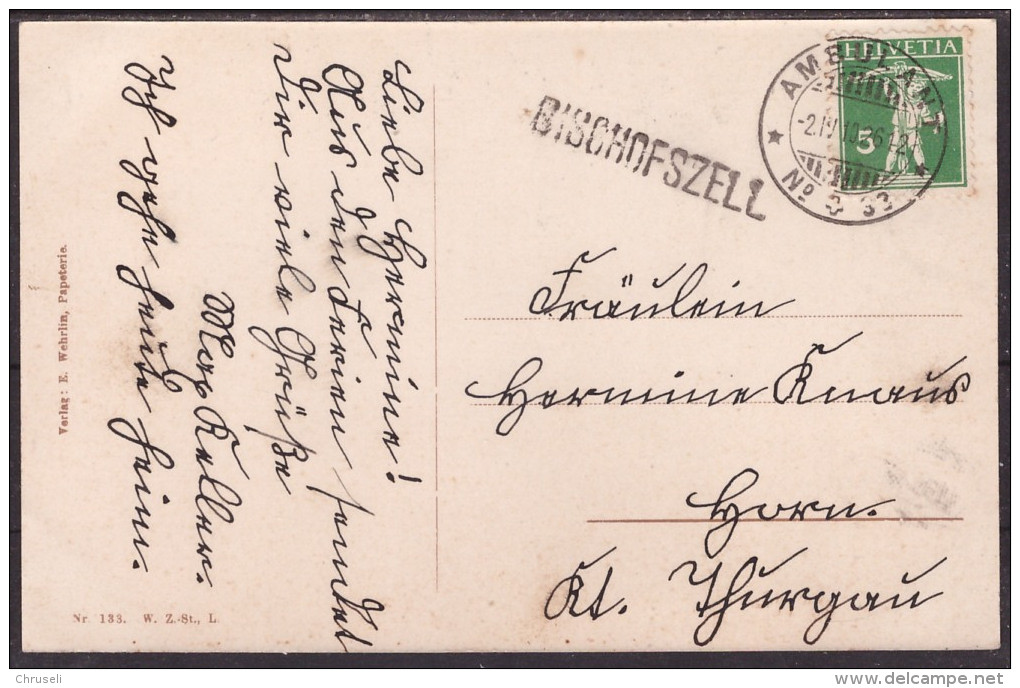 Liebe Hermine!
Aus den Ferien sendet
Dir viele Grüße
Keller.
Ich gehe heute heim.
Verlag: E. Wehrlin, Papeterie.
Nr. 133. W. Z.-St., L.
BISCHOFSZELL
AMBULANT
-2.IV.10.
No 33
HELVETIA
5
Fräulein
Hermine Knaus
Horn.
Kt. Thurgau
Chruseli
delcampe.net